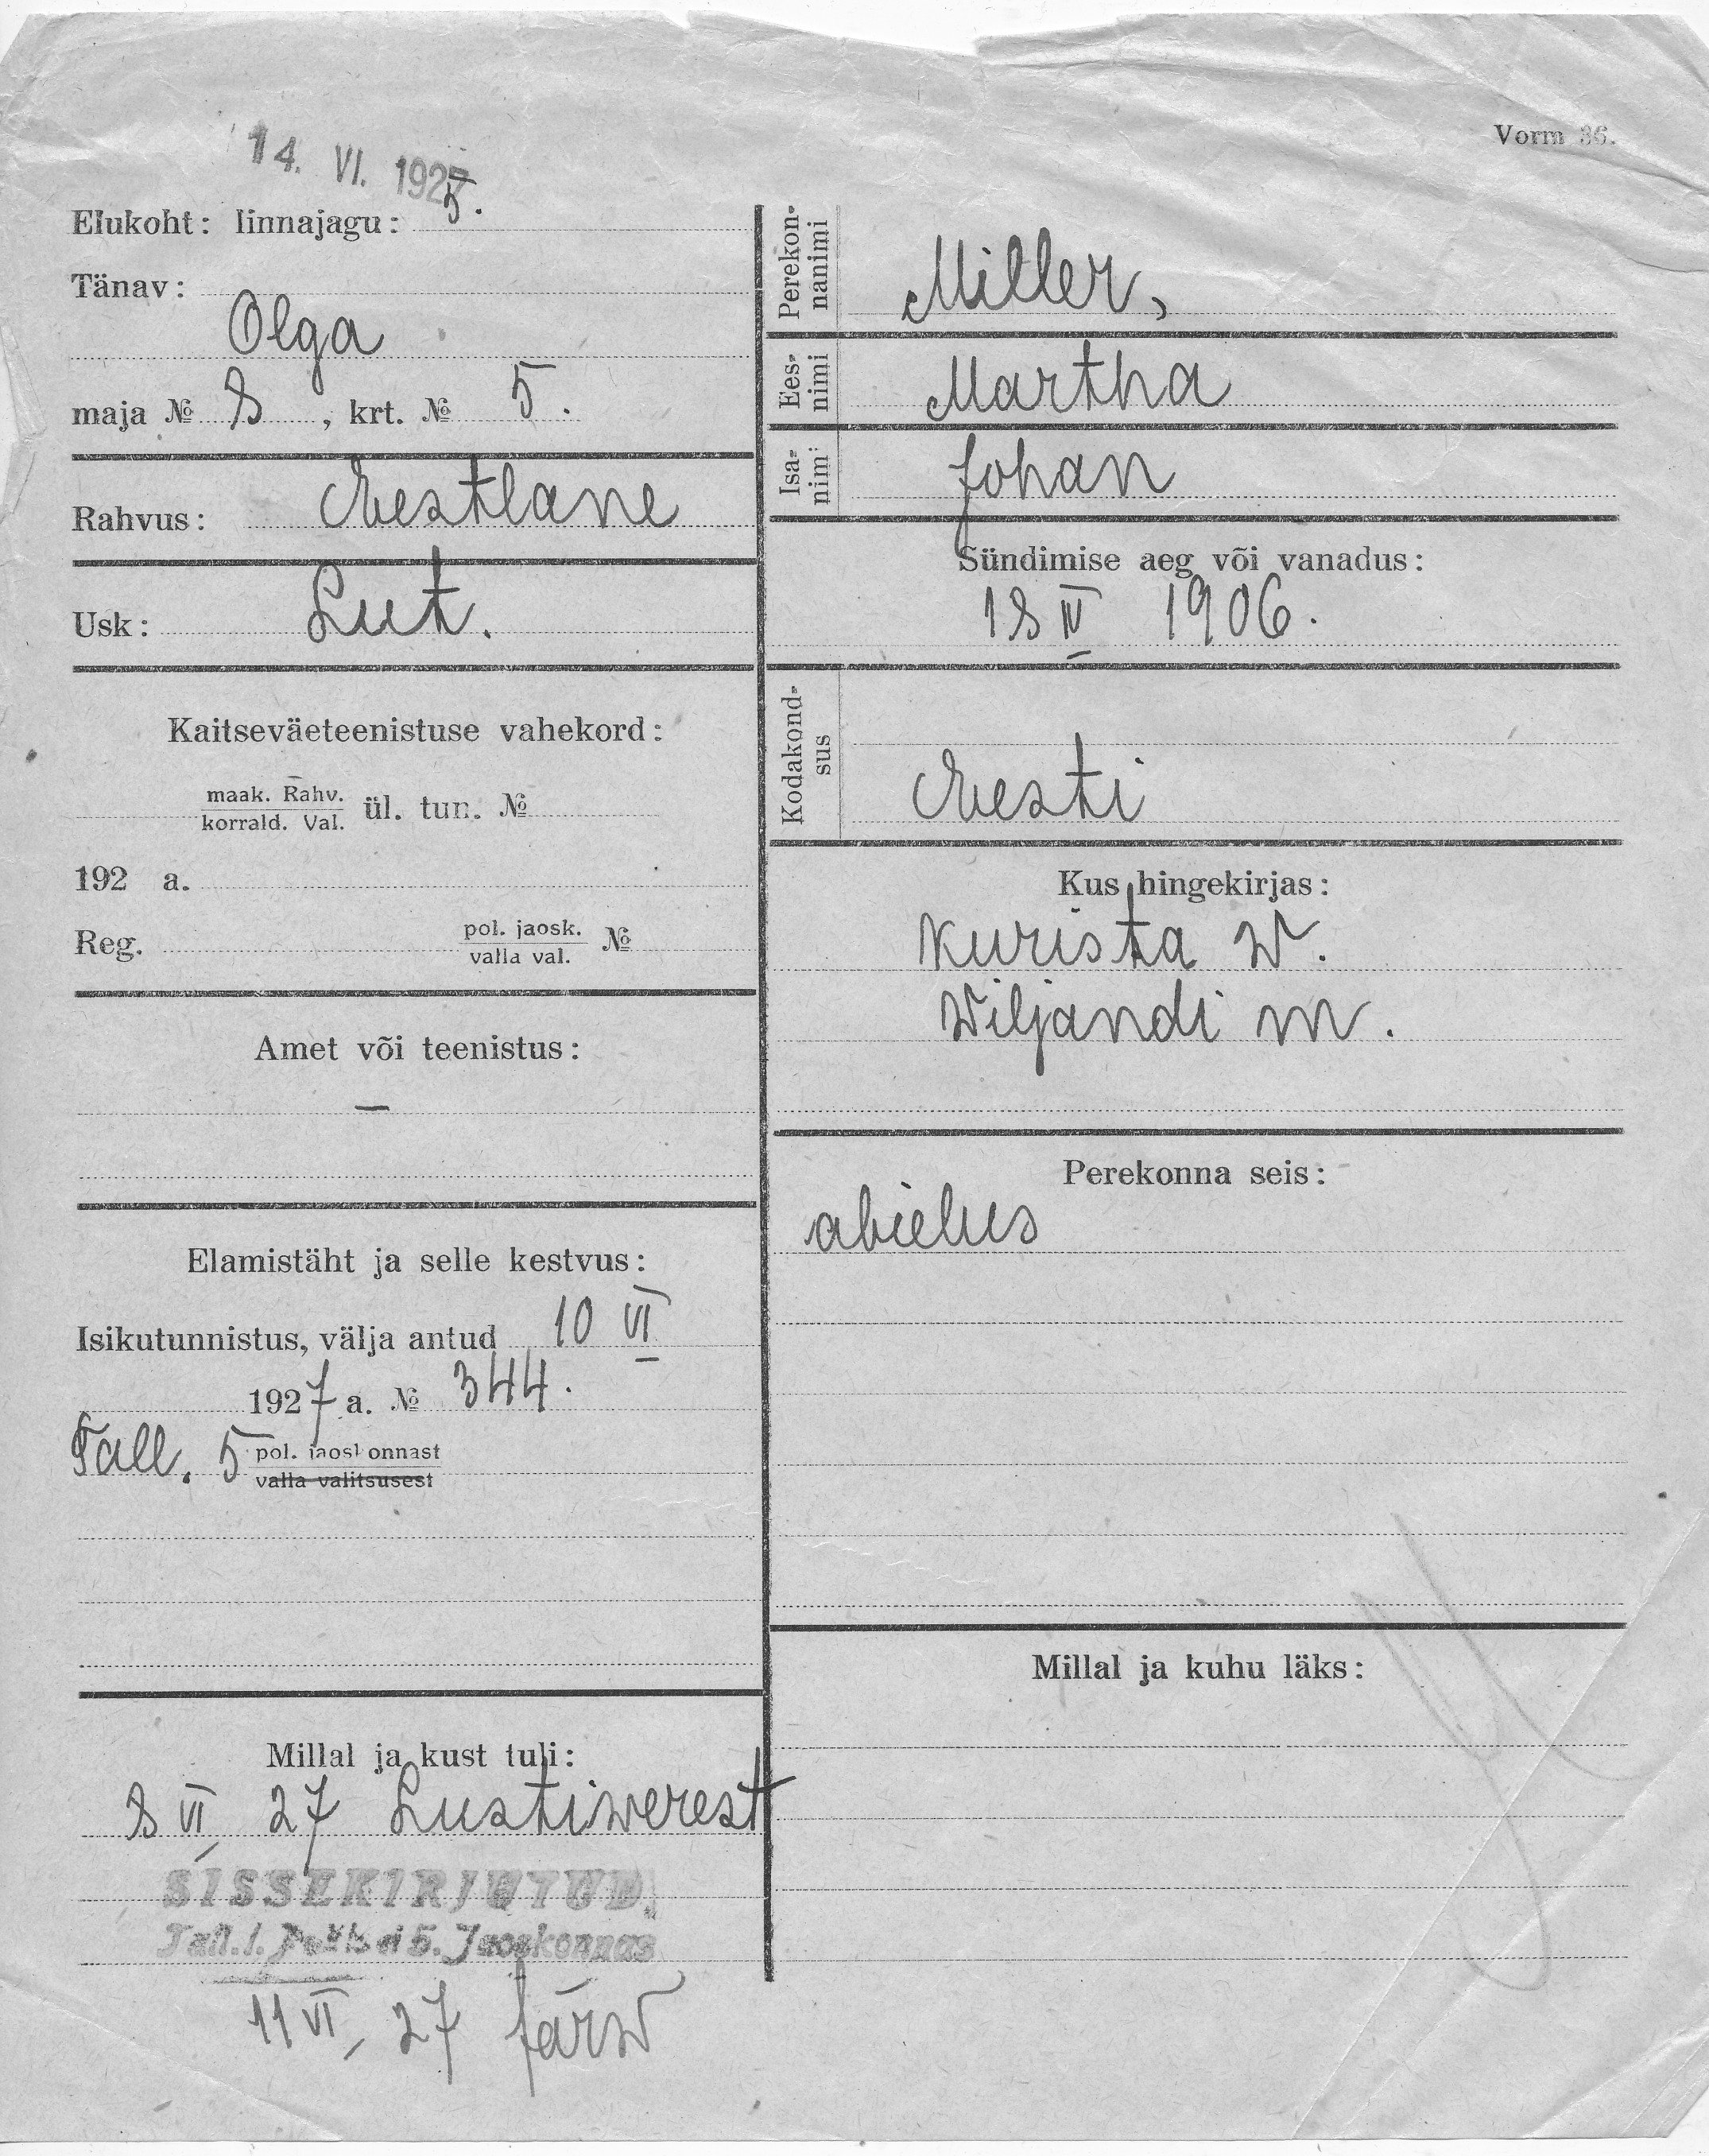 Vorm 36.
14. VI. 1927
Elukoht: linnajagu: 5.
Tänav:
Olga
maja № 8, krt. № 5.
Rahvus: Eestlane
Usk: Lut.
Kaitseväeteenistuse vahekord:
maak. Rahv.
korrald. Val. ül. tun. №
192 a.
Reg. pol. jaosk.
valla val. №
Amet või teenistus:
—
Elamistäht ja selle kestvus:
Isikutunnistus, välja antud 10 VI
1927 a. № 344.
Tall. 5 pol. jaoskonnast
valla valitsusest
Millal ja kust tuli:
8 VI 27 Lustiwerest
SISSEKIRJUTUD.
Tall. l. Politsei 5. Jaoskonnas
11 VI 27 Järw
Perekon-
nanimi
Miller,
Ees-
nimi
Martha
Isa-
nimi
Johan
Sündimise aeg või vanadus:
18 IV 1906.
Kodakond-
sus
Eesti
Kus hingekirjas:
Kurista W.
Wiljandi m.
Perekonna seis:
abielus
Millal ja kuhu läks: